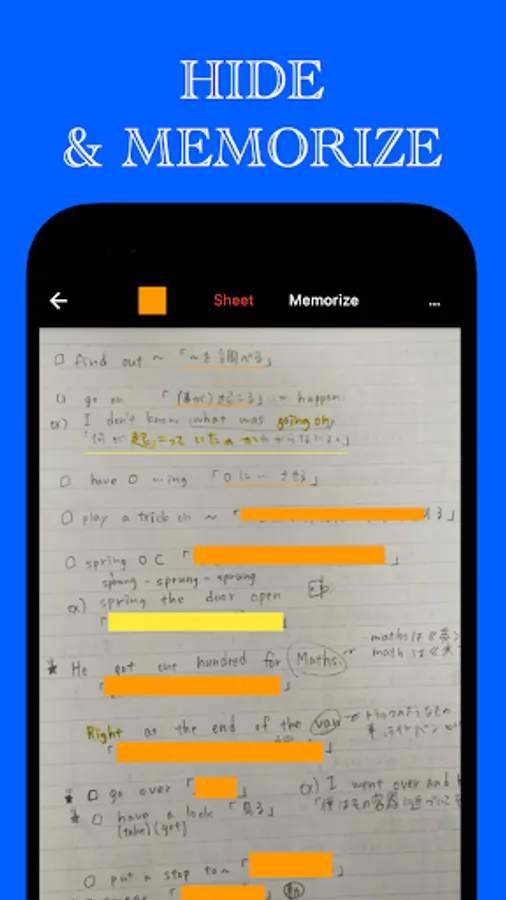 HIDE
& MEMORIZE
Sheet Memorize ...
□ find out ~ 「~を調べる」
□ go on 「(事が)起こる」 = happen
ex) I don't know what was going on.
「何が起こっていたのかわからない。」
□ have O ...ing 「Oに…させる」
□ play a trick on ~ 「 る」
□ spring O C 「 」
sprang - sprung - sprung
ex) spring the door open
「 」
★ He got one hundred for Maths.
maths は《英》
math は《米
「 」
Right at the end of the van
「 」
★ □ go over 「 」 ex) I went over and
★ □ have a look 「見る」
(take) (get)
□ put a stop to~ 「 」
「 」